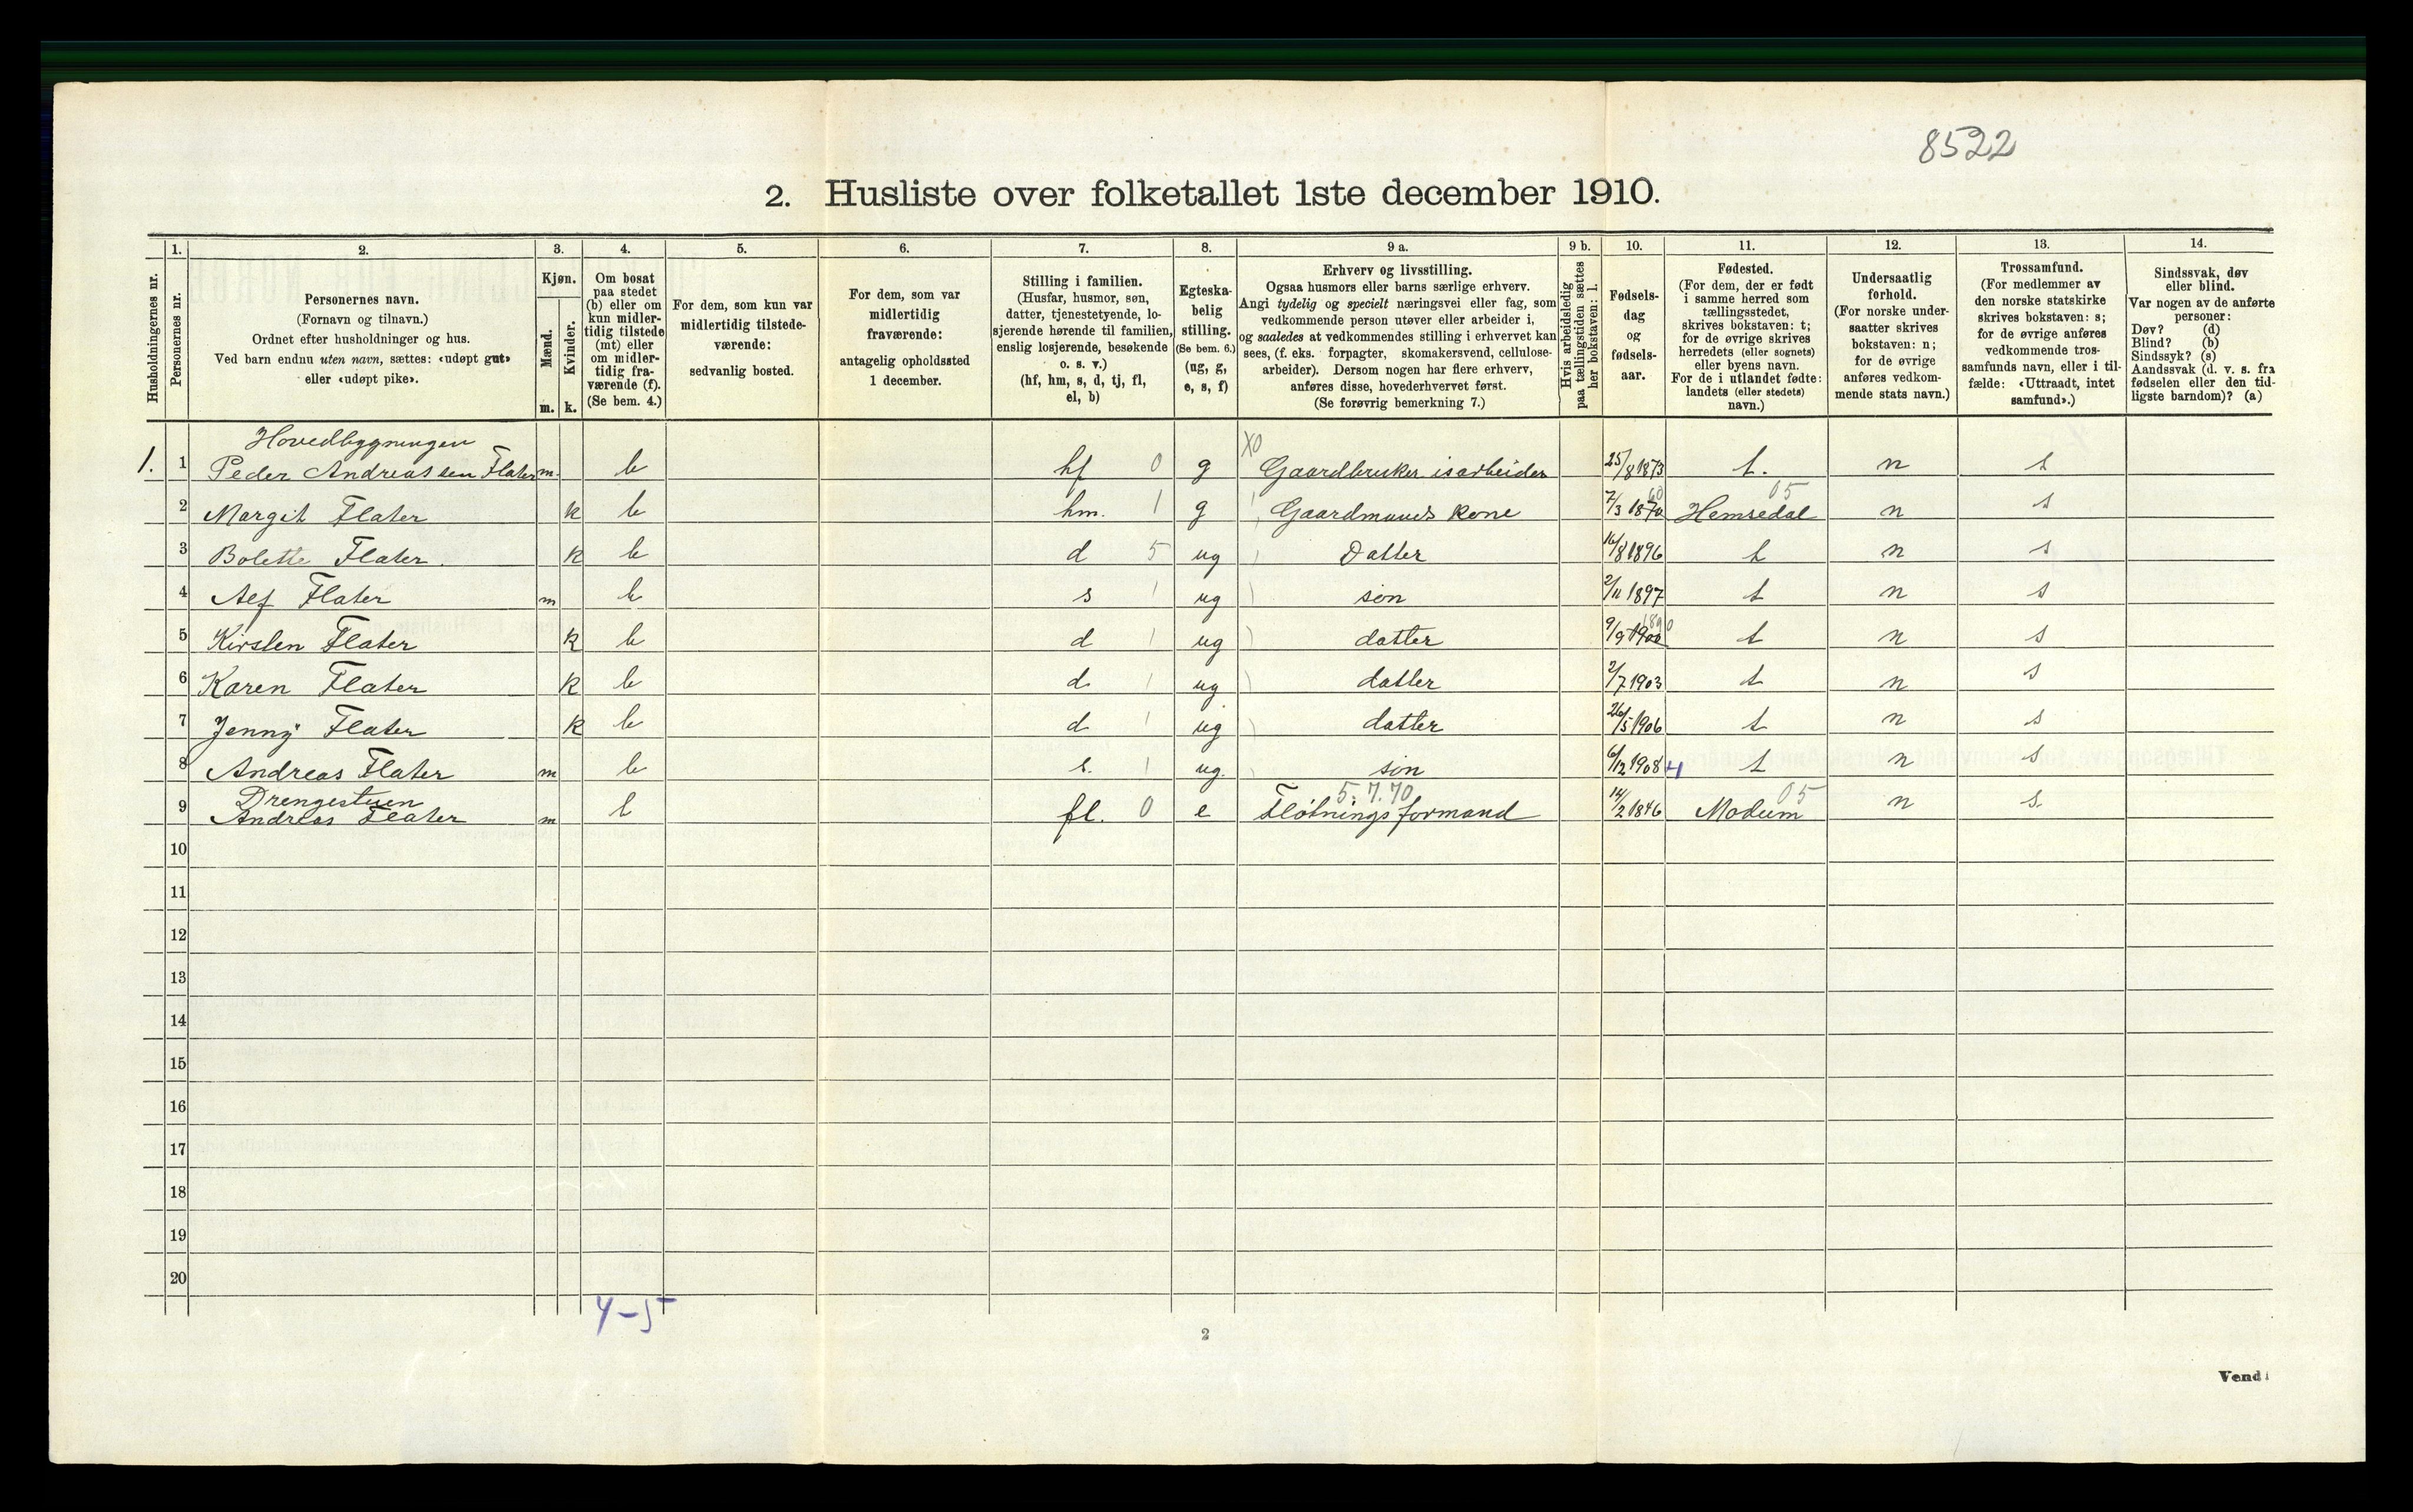 8522
2. Husliste over folketallet 1ste december 1910.
Husholdningernes nr.
1.
Personernes nr.
2.
Personernes navn.
(Fornavn og tilnavn.)
Ordnet efter husholdninger og hus.
Ved barn endnu uten navn, sættes: «udøpt gut»
eller «udøpt pike».
3.
Kjøn.
Mænd.
Kvinder.
m. k.
4.
Om bosat
paa stedet
(b) eller om
kun midler-
tidig tilstede
(mt) eller
om midler-
tidig fra-
værende (f).
(Se bem. 4.)
5.
For dem, som kun var
midlertidig tilstede-
værende:
sedvanlig bosted.
6.
For dem, som var
midlertidig
fraværende:
antagelig opholdssted
1 december.
7.
Stilling i familien.
(Husfar, husmor, søn,
datter, tjenestetyende, lo-
sjerende hørende til familien,
enslig losjerende, besøkende
o. s. v.)
(hf, hm, s, d, tj, fl,
el, b)
8.
Egteska-
belig
stilling.
(Se bem. 6.)
(ug, g,
e, s, f)
9 a.
Erhverv og livsstilling.
Ogsaa husmors eller barns særlige erhverv.
Angi tydelig og specielt næringsvei eller fag, som
vedkommende person utøver eller arbeider i,
og saaledes at vedkommendes stilling i erhvervet kan
sees, (f. eks. forpagter, skomakersvend, cellulose-
arbeider). Dersom nogen har flere erhverv,
anføres disse, hovederhvervet først.
(Se forøvrig bemerkning 7.)
9 b.
Hvis arbeidsledig
paa tællingstiden sættes
her bokstaven: l.
10.
Fødsels-
dag
og
fødsels-
aar.
11.
Fødested.
(For dem, der er født
i samme herred som
tællingsstedet,
skrives bokstaven: t;
for de øvrige skrives
herredets (eller sognets)
eller byens navn.
For de i utlandet fødte:
landets (eller stedets)
navn.)
12.
Undersaatlig
forhold.
(For norske under-
saatter skrives
bokstaven: n;
for de øvrige
anføres vedkom-
mende stats navn.)
13.
Trossamfund.
(For medlemmer av
den norske statskirke
skrives bokstaven: s;
for de øvrige anføres
vedkommende tros-
samfunds navn, eller i til-
fælde: «Uttraadt, intet
samfund».)
14.
Sindssvak, døv
eller blind.
Var nogen av de anførte
personer:
Døv? (d)
Blind? (b)
Sindssyk? (s)
Aandssvak (d. v. s. fra
fødselen eller den tid-
ligste barndom)? (a)
Hovedbygningen X0
1. 1 Peder Andreassen Flater m. b hf 0 g Gaardbruker isarbeider 25/8 1873 t. n s
2 Margit Flater k b hm. 1 g Gaardmands kone 7/3 1870 Hemsedal 05 n s
3 Bolette Flater. k b d 5 ug Datter 16/8 1896 t n s
4 Alf Flater m b s 1 ug søn 2/11 1897 t n s
5 Kirsten Flater k b d 1 ug datter 9/9 1900 t n s
6 Karen Flater k b d. 1 ug datter 2/7 1903 t n s
7 Jenny Flater k b d. 1 ug datter 26/5 1906 t n s
8 Andreas Flater m b s. 1 ug. søn 6/12 1908 4 t n s
Drengestuen 5.7.70 05
9 Andreas Flater m b fl. 0 e Fløtningsformand 14/2 1846 Modum n s.
10
11
12
13
14
15
16
17
18
19
20
4-5
2
Vend!